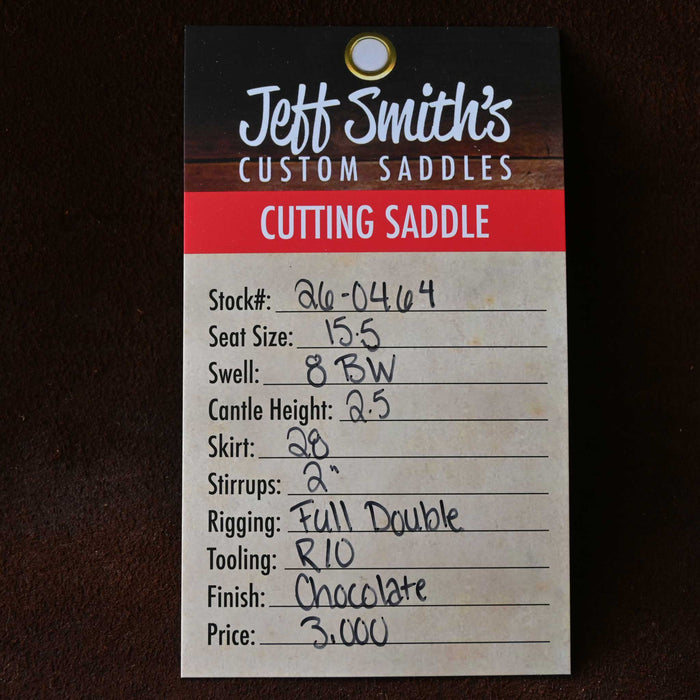 Jeff Smith's
CUSTOM SADDLES
CUTTING SADDLE
Stock#: 26-0464
Seat Size: 15.5
Swell: 8 BW
Cantle Height: 2.5
Skirt: 28
Stirrups: 2"
Rigging: Full Double
Tooling: RIO
Finish: Chocolate
Price: 3.000